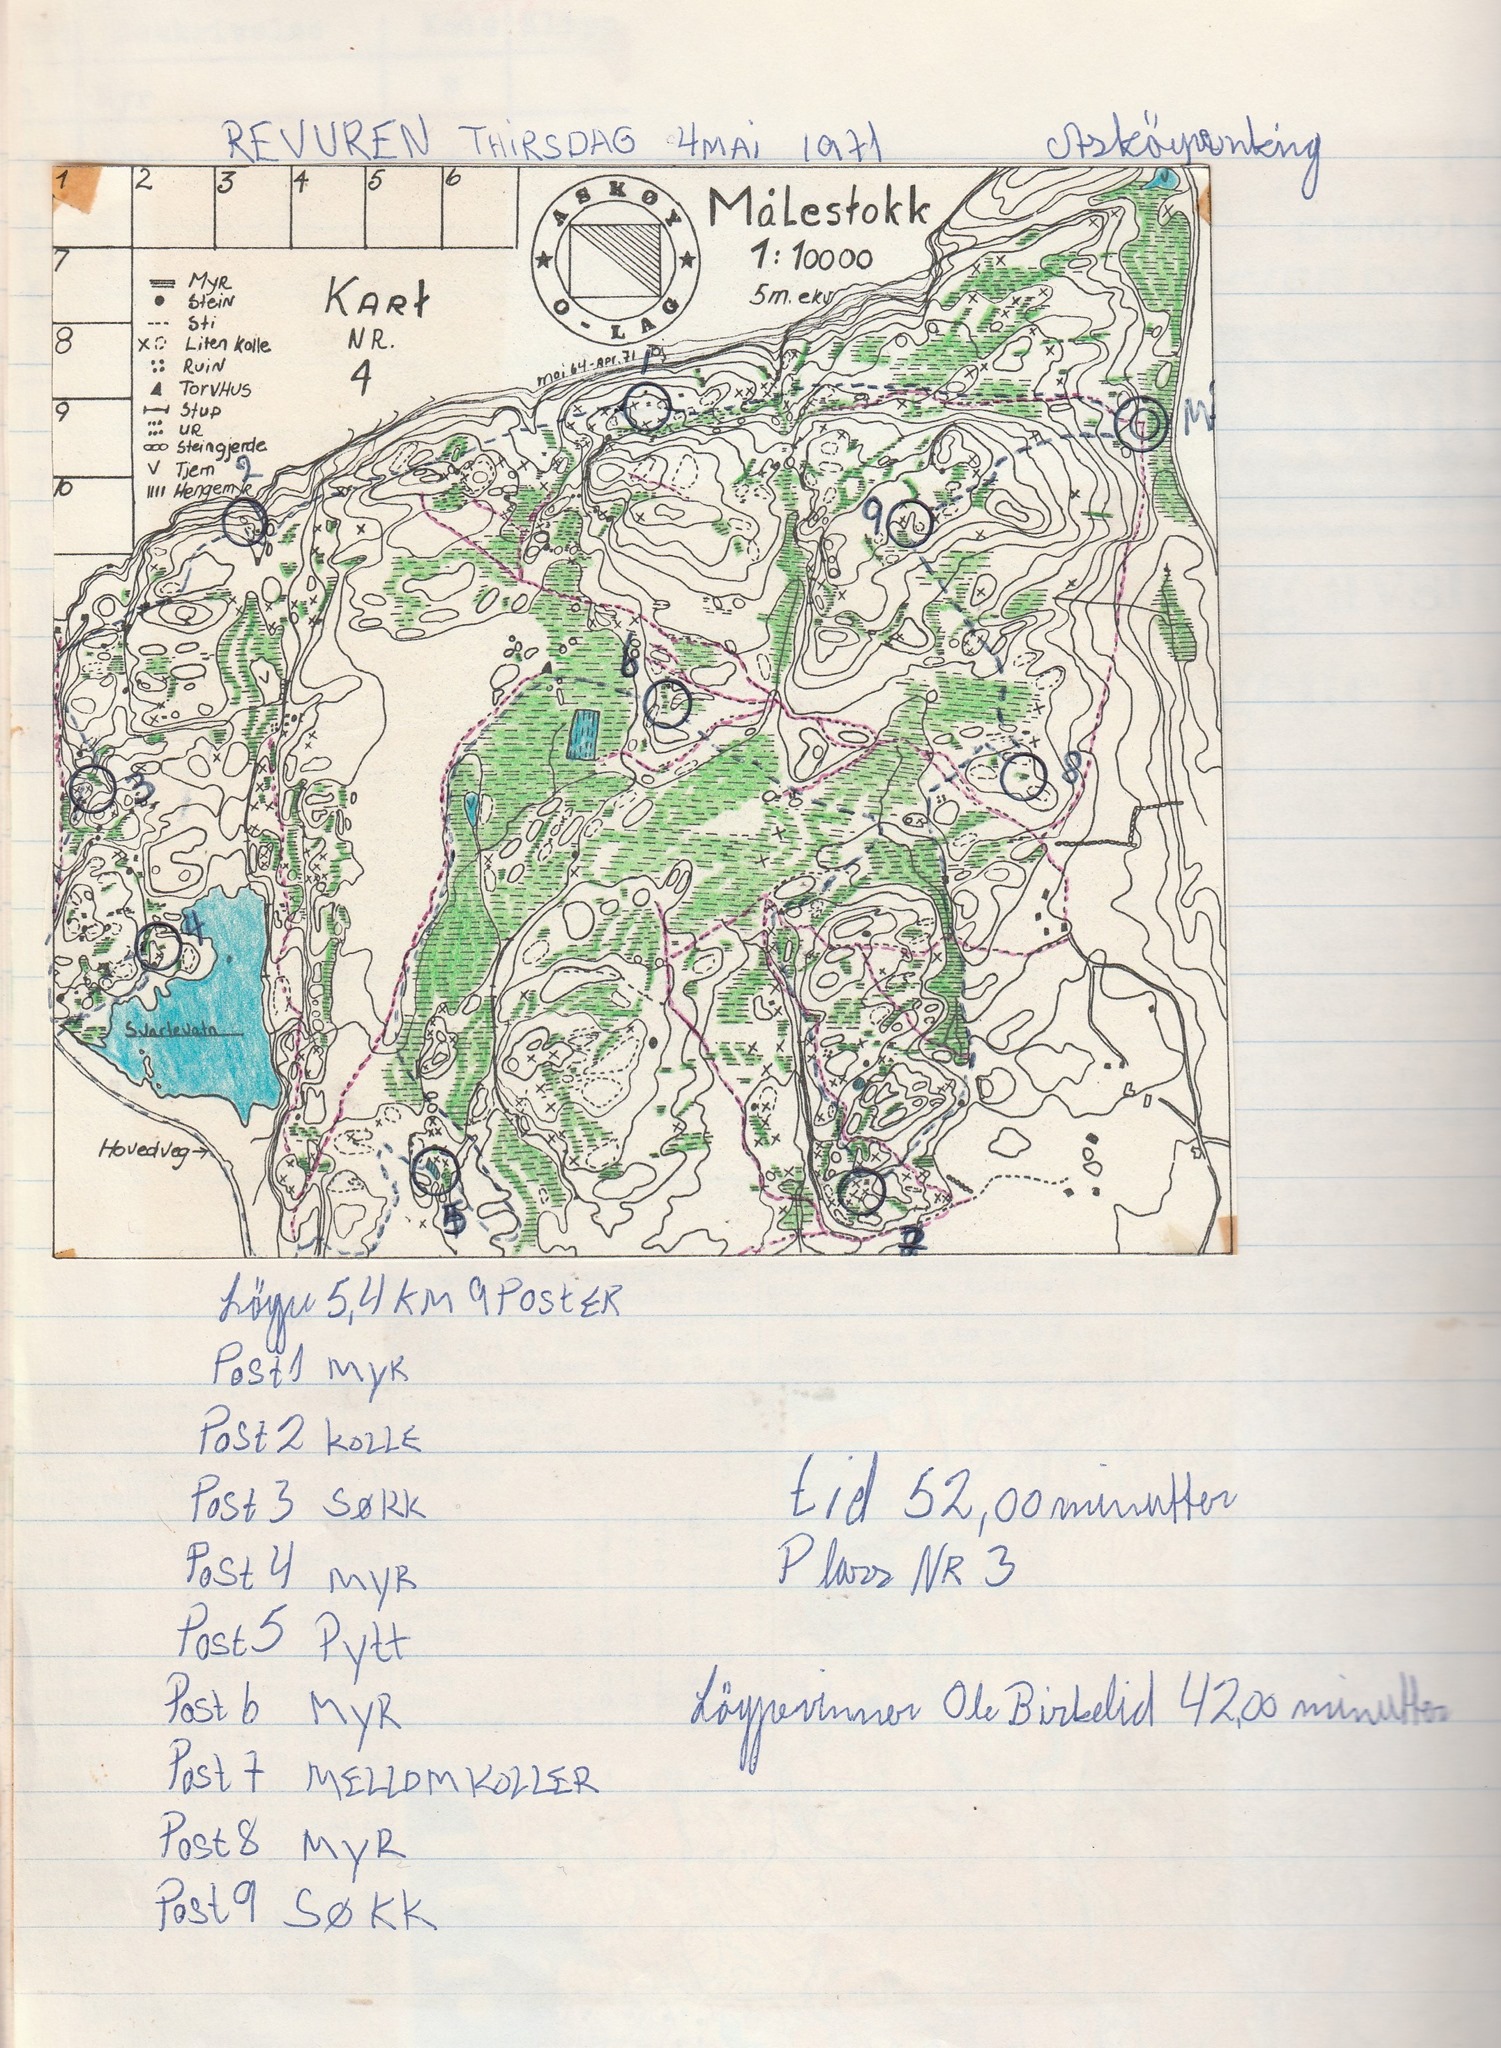 REVUREN THIRSDAG 4MAI 1971 Asköyranking
1 2 3 4 5 6
7
8
9
10
ASKØY O-LAG
Målestokk
1:10000
5m. ekv
mai 64-Apr. 71
KART
NR.
4
MYR
Stein
Sti
Liten Kolle
Ruin
TORVHUS
Stup
UR
Steingjerde
Tjern
Hengemyr
1
2
3
4
5
6
7
8
9
M
Svartevatn
Hovedveg→
Löype 5,4 KM 9 POSTER
Post 1 MYR
Post 2 KOLLE
Post 3 SØKK
Post 4 MYR
Post 5 Pytt
Post 6 MYR
Post 7 MELLOM KOLLER
Post 8 MYR
Post 9 SØKK
tid 52,00 minutter
Plass NR 3
Löypevinner Ole Birkelid 42,00 minutter